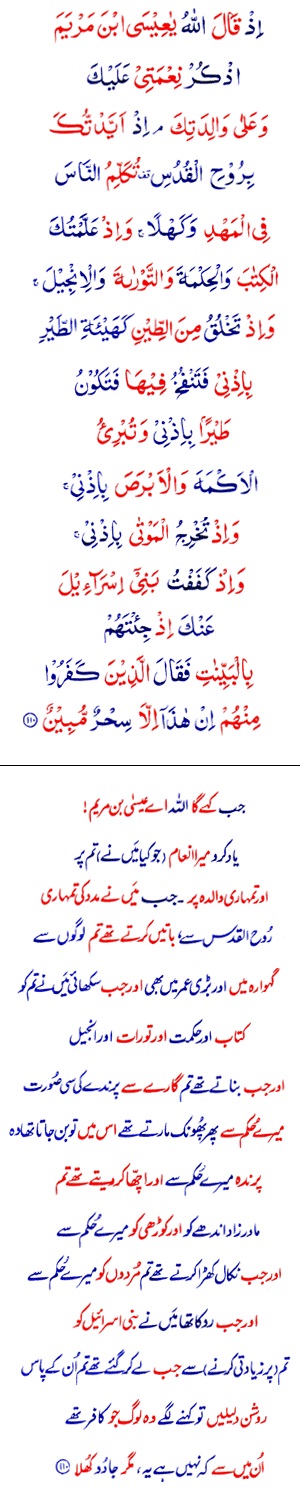 اِذْ قَالَ اللّٰهُ يٰعِيْسَى ابْنَ مَرْيَمَ
اذْكُرْ نِعْمَتِيْ عَلَيْكَ
وَعَلٰى وَالِدَتِكَ ۘ اِذْ اَيَّدْتُّكَ
بِرُوْحِ الْقُدُسِ ۟ تُكَلِّمُ النَّاسَ
فِي الْمَهْدِ وَكَهْلًا ۚ وَاِذْ عَلَّمْتُكَ
الْكِتٰبَ وَالْحِكْمَةَ وَالتَّوْرٰىةَ وَالْاِنْجِيْلَ ۚ
وَاِذْ تَخْلُقُ مِنَ الطِّيْنِ كَهَيْئَةِ الطَّيْرِ
بِاِذْنِيْ فَتَنْفُخُ فِيْهَا فَتَكُوْنُ
طَيْرًا بِاِذْنِيْ وَتُبْرِئُ
الْاَكْمَهَ وَالْاَبْرَصَ بِاِذْنِيْ ۚ
وَاِذْ تُخْرِجُ الْمَوْتٰى بِاِذْنِيْ ۚ
وَاِذْ كَفَفْتُ بَنِيْٓ اِسْرَآءِيْلَ
عَنْكَ اِذْ جِئْتَهُمْ
بِالْبَيِّنٰتِ فَقَالَ الَّذِيْنَ كَفَرُوْا
مِنْهُمْ اِنْ هٰذَآ اِلَّا سِحْرٌ مُّبِيْنٌ ﴿۱۱۰﴾
جب کہے گا اللہ اے عیسیٰ بن مریم!
یاد کرو میرا انعام (جو کیا میں نے) تم پر
اور تمہاری والدہ پر۔ جب میں نے مدد کی تمہاری
رُوح القدس سے، باتیں کرتے تھے تم لوگوں سے
گہوارہ میں اور بڑی عمر میں بھی اور جب سکھائی میں نے تم کو
کتاب اور حکمت اور تورات اور انجیل
اور جب بناتے تھے تم گارے سے پرندے کی سی صُورت
میرے حُکم سے پھر پُھونک مارتے تھے اس میں تو بن جاتا تھا وہ
پرندہ میرے حُکم سے اور اچّھا کر دیتے تھے تم
مادر زاد اندھے کو اور کوڑھی کو میرے حُکم سے
اور جب نکال کھڑا کرتے تھے تم مُردوں کو میرے حُکم سے
اور جب روکا تھا میں نے بنی اسرائیل کو
تم (پر زیادتی کرنے) سے جب لے کر گئے تھے تم اُن کے پاس
روشن دلیلیں تو کہنے لگے وہ لوگ جو کافر تھے
اُن میں سے کہ نہیں ہے یہ، مگر جادُو کُھلا ﴿۱۱۰﴾